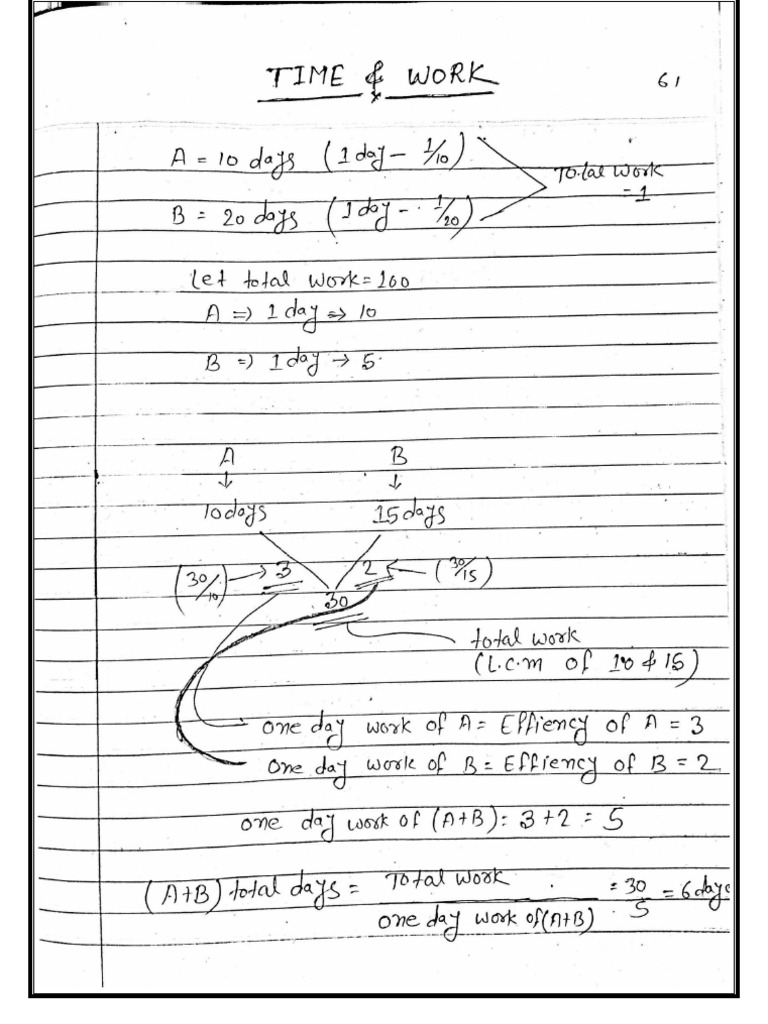 TIME & WORK
61
A = 10 days (1 day - 1/10)
Total work = 1
B = 20 days (1 day - 1/20)
Let total work = 100
A => 1 day => 10
B => 1 day → 5.
A B
↓ ↓
10 days 15 days
(30/10) → 3 2 ← (30/15)
30
total work
(L.C.M of 10 & 15)
one day work of A = Effiency of A = 3
one day work of B = Effiency of B = 2
one day work of (A+B) = 3 + 2 = 5
(A+B) total days = Total work / one day work of (A+B) = 30/5 = 6 days